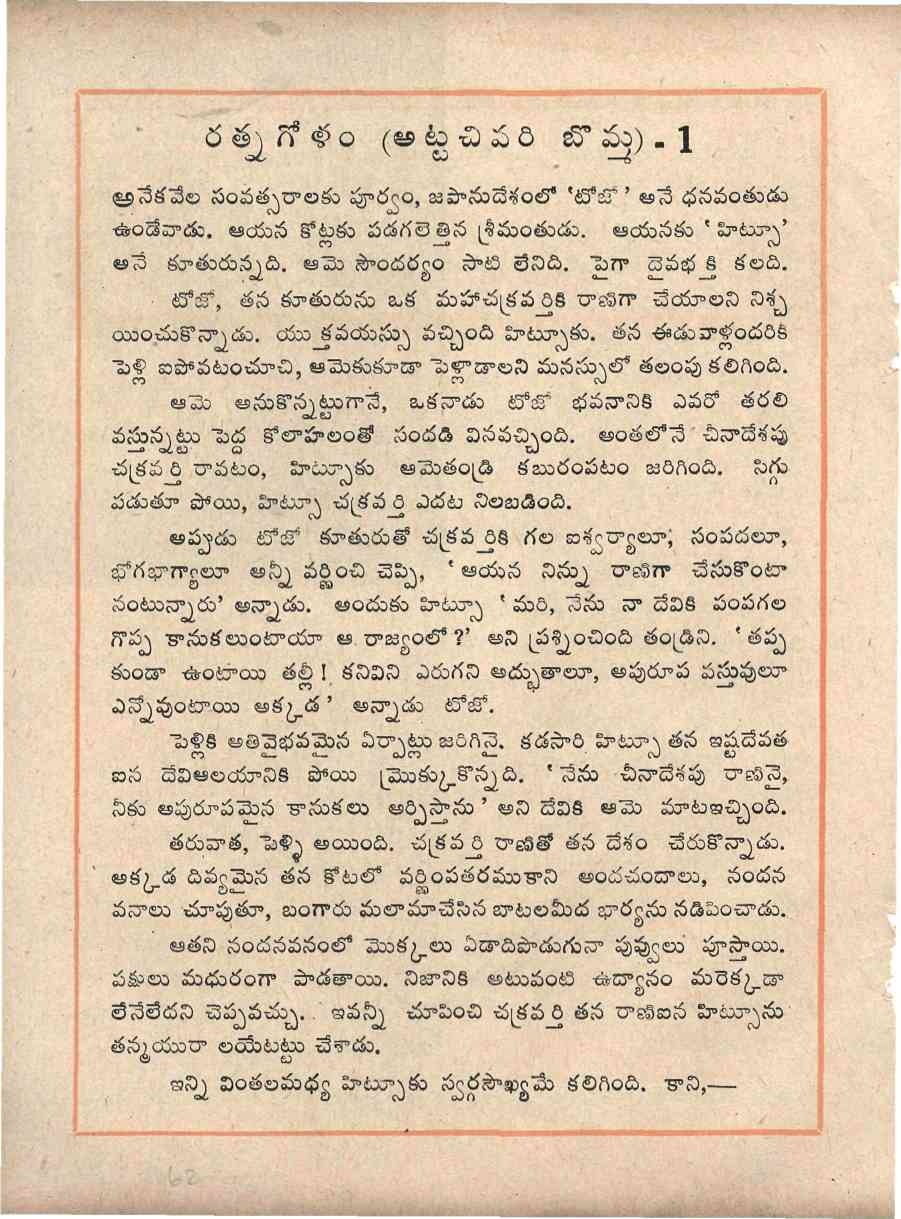 రత్నగోళం (అట్టచివరి బొమ్మ) - 1
అనేకవేల సంవత్సరాలకు పూర్వం, జపానుదేశంలో ‘టోజో’ అనే ధనవంతుడు
ఉండేవాడు. ఆయన కోట్లకు పడగలెత్తిన శ్రీమంతుడు. ఆయనకు ‘హిట్సూ’
అనే కూతురున్నది. ఆమె సౌందర్యం సాటి లేనిది. పైగా దైవభక్తి కలది.
టోజో, తన కూతురును ఒక మహాచక్రవర్తికి రాణిగా చేయాలని నిశ్చ
యించుకొన్నాడు. యుక్తవయస్సు వచ్చింది హిట్సూకు. తన ఈడువాళ్లందరికి
పెళ్లి ఐపోవటంచూచి, ఆమెకుకూడా పెళ్లాడాలని మనస్సులో తలంపు కలిగింది.
ఆమె అనుకొన్నట్టుగానే, ఒకనాడు టోజో భవనానికి ఎవరో తరలి
వస్తున్నట్టు పెద్ద కోలాహలంతో సందడి వినవచ్చింది. అంతలోనే చీనాదేశపు
చక్రవర్తి రావటం, హిట్సూకు ఆమెతండ్రి కబురంపటం జరిగింది. సిగ్గు
పడుతూ పోయి, హిట్సూ చక్రవర్తి ఎదట నిలబడింది.
అప్పుడు టోజో కూతురుతో చక్రవర్తికి గల ఐశ్వర్యాలూ, సంపదలూ,
భోగభాగ్యాలూ అన్నీ వర్ణించి చెప్పి, ‘ఆయన నిన్ను రాణిగా చేసుకొంటా
నంటున్నారు’ అన్నాడు. అందుకు హిట్సూ ‘మరి, నేను నా దేవికి పంపగల
గొప్ప కానుకలుంటాయా ఆ రాజ్యంలో?’ అని ప్రశ్నించింది తండ్రిని. ‘తప్ప
కుండా ఉంటాయి తల్లీ! కనివిని ఎరుగని అద్భుతాలూ, అపురూప వస్తువులూ
ఎన్నోవుంటాయి అక్కడ’ అన్నాడు టోజో.
పెళ్లికి అతివైభవమైన ఏర్పాట్లు జరిగినై. కడసారి హిట్సూ తన ఇష్టదేవత
ఐస దేవిఆలయానికి పోయి మ్రొక్కుకొన్నది. ‘నేను చీనాదేశపు రాణినై,
నీకు అపురూపమైన కానుకలు అర్పిస్తాను’ అని దేవికి ఆమె మాటఇచ్చింది.
తరువాత, పెళ్ళి అయింది. చక్రవర్తి రాణితో తన దేశం చేరుకొన్నాడు.
అక్కడ దివ్యమైన తన కోటలో వర్ణింపతరముకాని అందచందాలు, నందన
వనాలు చూపుతూ, బంగారు మలామాచేసిన బాటలమీద భార్యను నడిపించాడు.
ఆతని నందనవనంలో మొక్కలు ఏడాదిపొడుగునా పువ్వులు పూస్తాయి.
పక్షులు మధురంగా పాడతాయి. నిజానికి అటువంటి ఉద్యానం మరెక్కడా
లేనేలేదని చెప్పవచ్చు. ఇవన్నీ చూపించి చక్రవర్తి తన రాణిఐన హిట్సూను
తన్మయురా లయేటట్టు చేశాడు.
ఇన్ని వింతలమధ్య హిట్సూకు స్వర్గసౌఖ్యమే కలిగింది. కాని,—
62